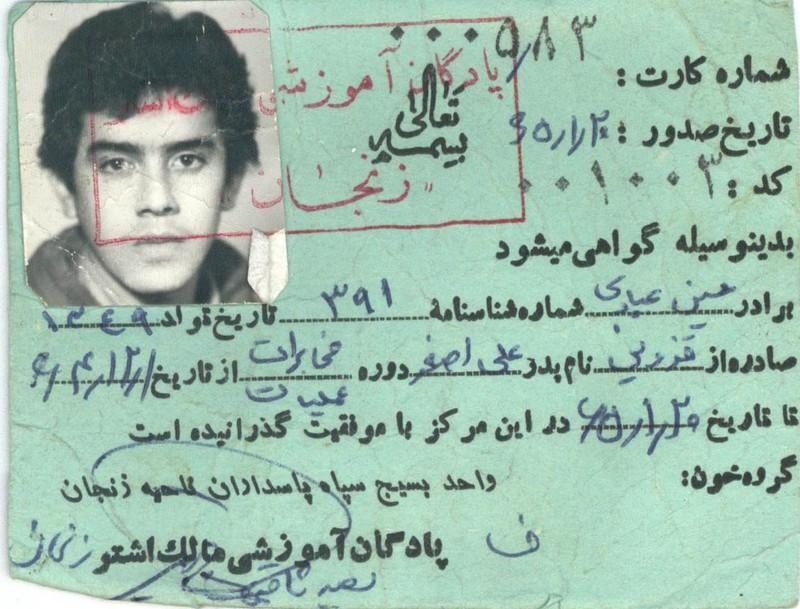 بسمه تعالی
شماره کارت: ۰۰۰۵۸۳
تاریخ صدور: ۶۵/۱/۲۰
کد: ۰۰۱۰۰۳
پادگان آموزشی
زنجان
بدینوسیله گواهی میشود
برادر حسین عبادی شماره شناسنامهٔ ۳۹۱ تاریخ تولد ۱۳۴۹
صادره از قزوین نام پدر علی اصغر دوره مخابرات عملیات از تاریخ ۶۴/۱۲/۱
تا تاریخ ۶۵/۱/۲۰ در این مرکز با موفقیت گذرانیده است
گروه خون:
واحد بسیج سپاه پاسداران ناحیه زنجان
ف پادگان آموزشی مالک اشتر زنجان